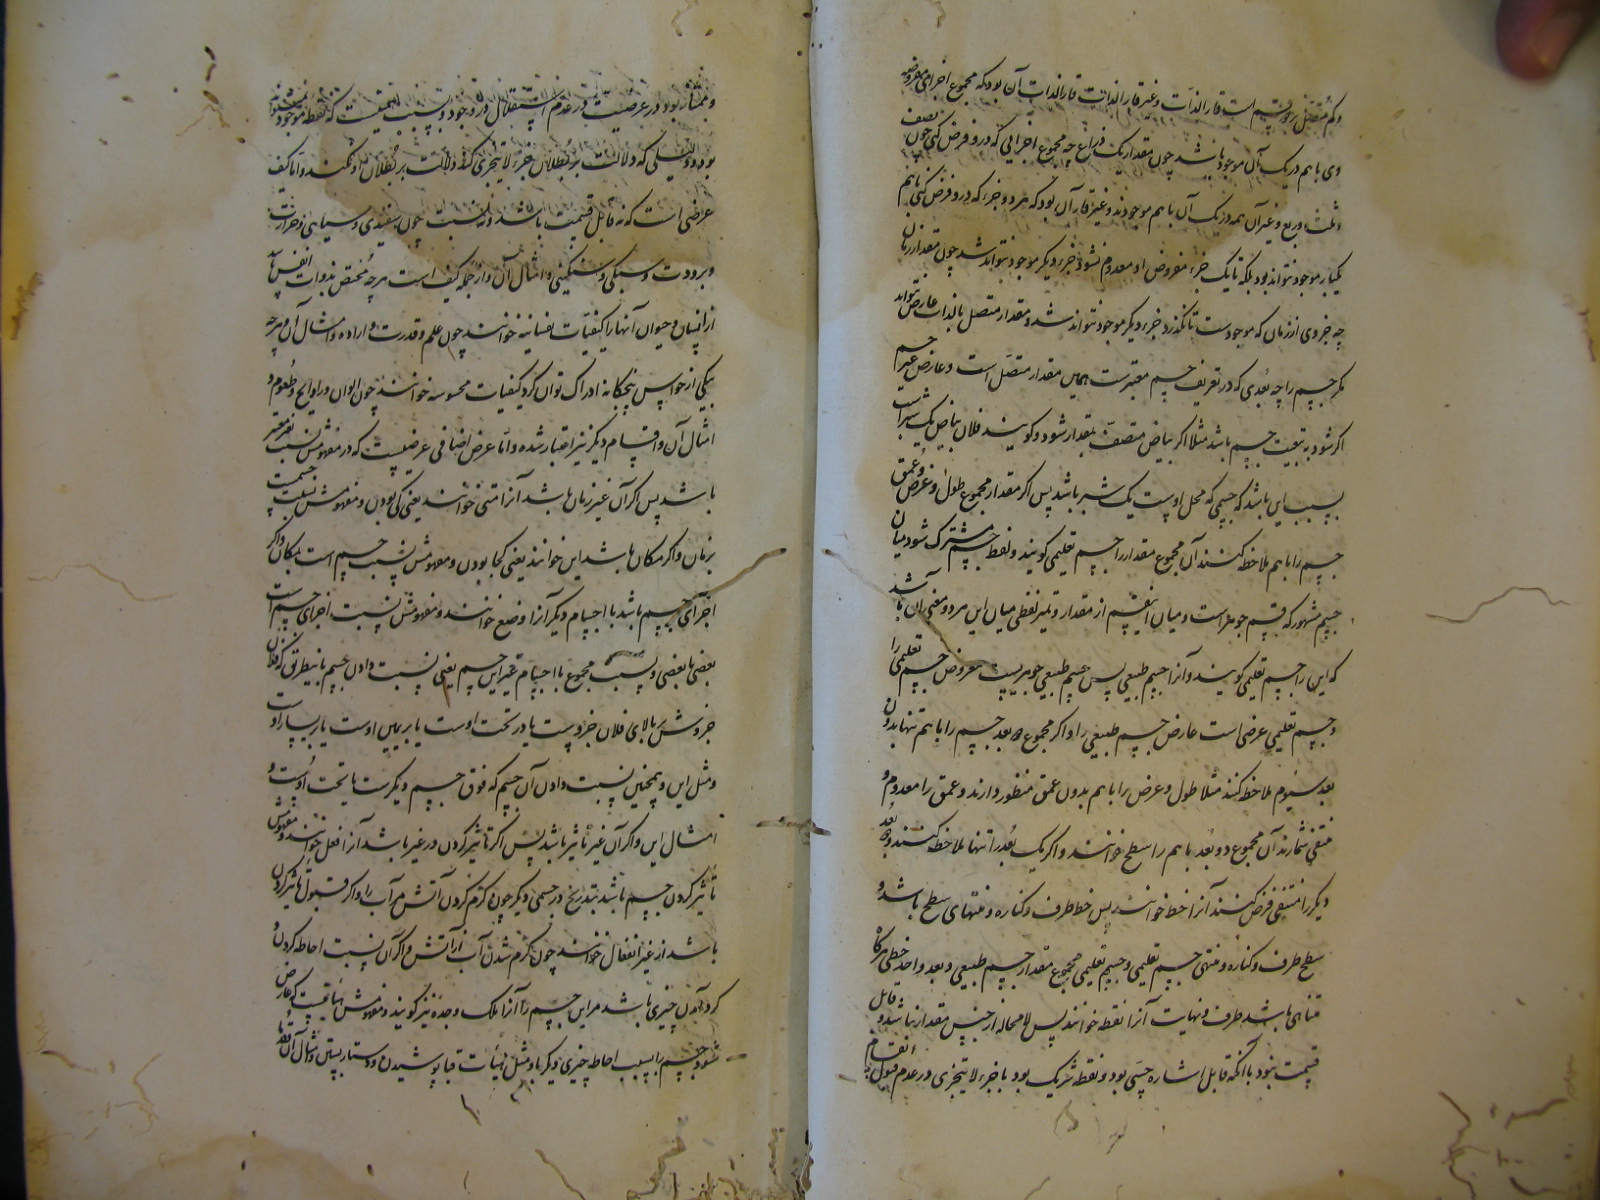 و کم متصل بر دو قسم است قار الذات و غیر قار الذات قار الذات آن بود که مجموع اجزای مفروضه
وی با هم در یک آن موجود باشد چون مقدار یک ذراع چه مجموع اجزایی که درو فرض کنی چون نصف
و ثلث و ربع و غیر آن همه در یک آن با هم موجودند و غیر قار آن بود که هر دو جزء که درو فرض کنی با هم
یکبار موجود نتواند بود بلکه تا یک جزء مفروض او معدوم نشود جزء دیگر موجود نتواند شد چون مقدار زمان
چه جزوی از زمان که موجودست تا نگذرد جزء دیگر موجود نتواند شد و مقدار متصل بالذات عارض نتواند
مگر جسم را چه بُعدی که در تعریف جسم معتبرست همین مقدار متصل است و عارض غیر جسم
اگر شود به تبعیت جسم باشد مثلا اگر بیاض متصف بمقدار شود و گویند فلان بیاض یک شبر است
بسبب این باشد که جسمی که محل اوست یک شبر باشد پس اگر مقدار مجموع طول و عرض و عمق
جسم را با هم ملاحظه کنند آن مجموع مقدار را جسم تعلیمی گویند و لفظ جسم مشترک شود میان
جسم مشهور که قسم جوهر است و میان این قسم از مقدار و تمیز لفظی میان این هر دو معنی آن باشد
که این را جسم تعلیمی گویند و آنرا جسم طبیعی پس جسم طبیعی جوهریست معروض جسم تعلیمی را
و جسم تعلیمی عرضی است عارض جسم طبیعی را و اگر مجموع دو بعد جسم را با هم تنها بدون
بعد سیوم ملاحظه کنند مثلا طول و عرض را با هم بدون عمق منظور دارند و عمق را معدوم و
منتفی شمارند آن مجموع دو بُعد با هم را سطح خوانند و اگر یک بُعد را تنها ملاحظه کنند و دو بعد
دیگر را منتفی فرض کنند آنرا خط خوانند پس خط طرف و کناره و منتهای سطح باشد و
سطح طرف و کناره و منتهی جسم تعلیمی و جسم تعلیمی مجموع مقدار جسم طبیعی و بعد واحد خطی هرگاه
متناهی باشد طرف و نهایت آنرا نقطه خوانند پس لامحاله از جنس مقدار نباشد و قابل
قسمت نبود با آنکه قابل اشاره حسی بود و نقطه شریک بود با جزء لا یتجزی در عدم قبول انقسام
و ممتاز بود در عرضیت در عدم استقلال در وجود و بسبب اینست که نقطه موجود
بود و دلیلی که دلالت بر بطلان جزء لا یتجزی کند دلالت بر بطلان او نکند و اما کیف
عرضی است که نه قابل قسمت باشد و نه نسبت چون سفیدی و سیاهی و حرارت
و برودت و سبکی و سنگینی و امثال آن و از جمله کیف است هر چه مختص بذوات انفس باشد
از انسان و حیوان آنها را کیفیات نفسانیه خوانند چون علم و قدرت و اراده و امثال آن و هر چه
بیکی از حواس پنجگانه ادراک توان کرد کیفیات محسوسه خوانند چون الوان و روایح و طعوم و
امثال آن و اقسام دیگر نیز اعتبار شده و اما عرض اضافی عرضیست که در مفهومش نسبت بغیر معتبر
باشد پس اگر آن غیر زمان باشد آنرا متی خوانند یعنی کی بودن و مفهومش نسبت جسمست
بزمان و اگر مکان باشد این خوانند یعنی کجا بودن و مفهومش نسبت جسم است بمکان و اگر
اجزای جسم باشد با اجسام دیگر آنرا وضع خوانند و مفهومش نسبت اجزای جسم است
بعضی با بعضی و نسبت مجموع با اجسام غیر این جسم یعنی نسبت دادن جسم باینطریق که فلان
جزوش بر بالای فلان جزوست یا در تحت اوست یا بر یمین اوست یا بر یسار اوست
و مثل این و همچنین نسبت دادن آن جسم که فوق جسم دیگرست یا تحت اوست و
امثال این و اگر آن غیر تأثیر باشد پس اگر تأثیر کردن در غیر باشد آنرا فعل خوانند و مفهومش
تأثیر کردن جسم باشد بتدریج در جسمی دیگر چون گرم کردن آتش مر آب را و اگر قبول تأثیر کردن
باشد از غیر انفعال خوانند چون گرم شدن آب از آتش و اگر آن نسبت احاطه کردن و
گرد آمدن چیزی باشد مر این جسم را آنرا ملک و جده نیز گویند و مفهومش هیأتیست که عارض
شود جسم را بسبب احاطه چیزی دیگر باو مثل هیأت قبا پوشیدن و دستار بستن و مثال آن